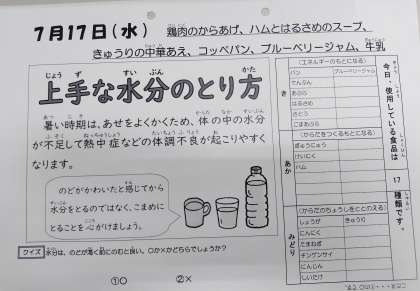 7月17日（水）
鶏肉のからあげ、ハムとはるさめのスープ、
きゅうりの中華あえ、コッペパン、ブルーベリージャム、牛乳
上手な水分のとり方
暑い時期は、あせをよくかくため、体の中の水分
が不足して熱中症などの体調不良が起こりやすく
なります。
のどがかわいたと感じてから
水分をとるのではなく、こまめに
とることを心がけましょう。
クイズ 水分は、のどが渇く前にのむと良い。○か×かどちらでしょうか？
①○ ②×
今日、使用している食品は
17
種類です。
き
（エネルギーのもとになる）
パン ブルーベリージャム
でんぷん
あぶら
はるさめ
さとう
ごまあぶら
あか
（からだをつくるもとになる）
ぎゅうにゅう
けいにく
ハム
みどり
（からだのちょうしをととのえる）
しょうが きゅうり
にんにく
たまねぎ
チンゲンサイ
にんじん
しいたけ